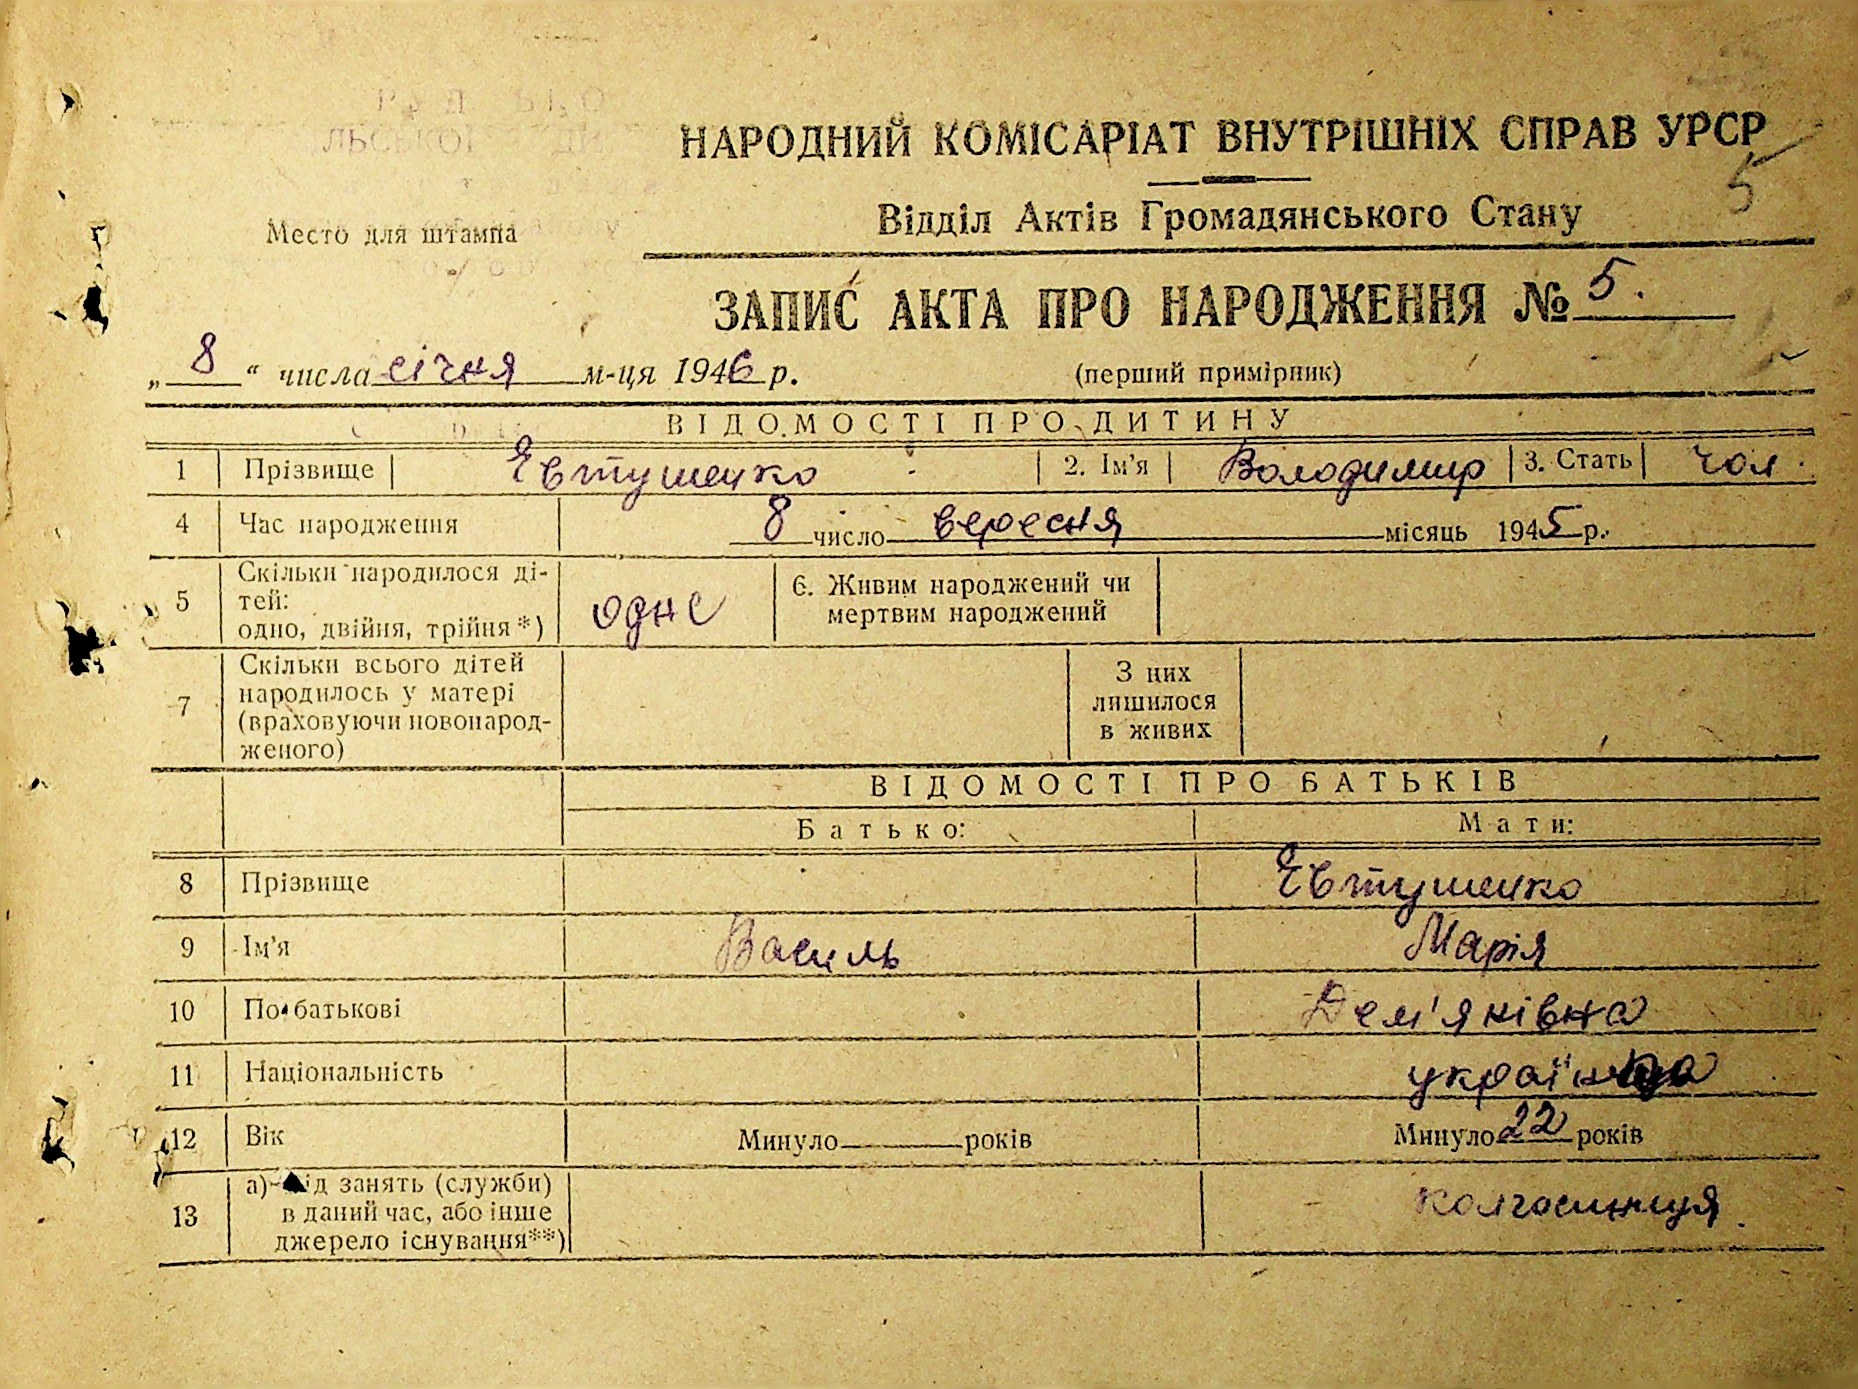 НАРОДНИЙ КОМІСАРІАТ ВНУТРІШНІХ СПРАВ УРСР
5
Место для штампа
Відділ Актів Громадянського Стану
ЗАПИС АКТА ПРО НАРОДЖЕННЯ № 5.
„ 8 “ числа січня м-ця 1946 р. (перший примірник)
ВІДОМОСТІ ПРО ДИТИНУ
1 Прізвище Євтушенко 2. Ім'я Володимир 3. Стать чол.
4 Час народження 8 число вересня місяць 1945 р.
5 Скільки народилося ді-
тей:
одно, двійня, трійня*) одне 6. Живим народжений чи
мертвим народжений
7 Скільки всього дітей
народилось у матері
(враховуючи новонарод-
женого) З них
лишилося
в живих
ВІДОМОСТІ ПРО БАТЬКІВ
Батько: Мати:
8 Прізвище Євтушенко
9 Ім'я Василь Марія
10 По батькові Дем'янівна
11 Національність українка
12 Вік Минуло років Минуло 22 років
13 а) Від занять (служби)
в даний час, або інше
джерело існування**) колгоспниця